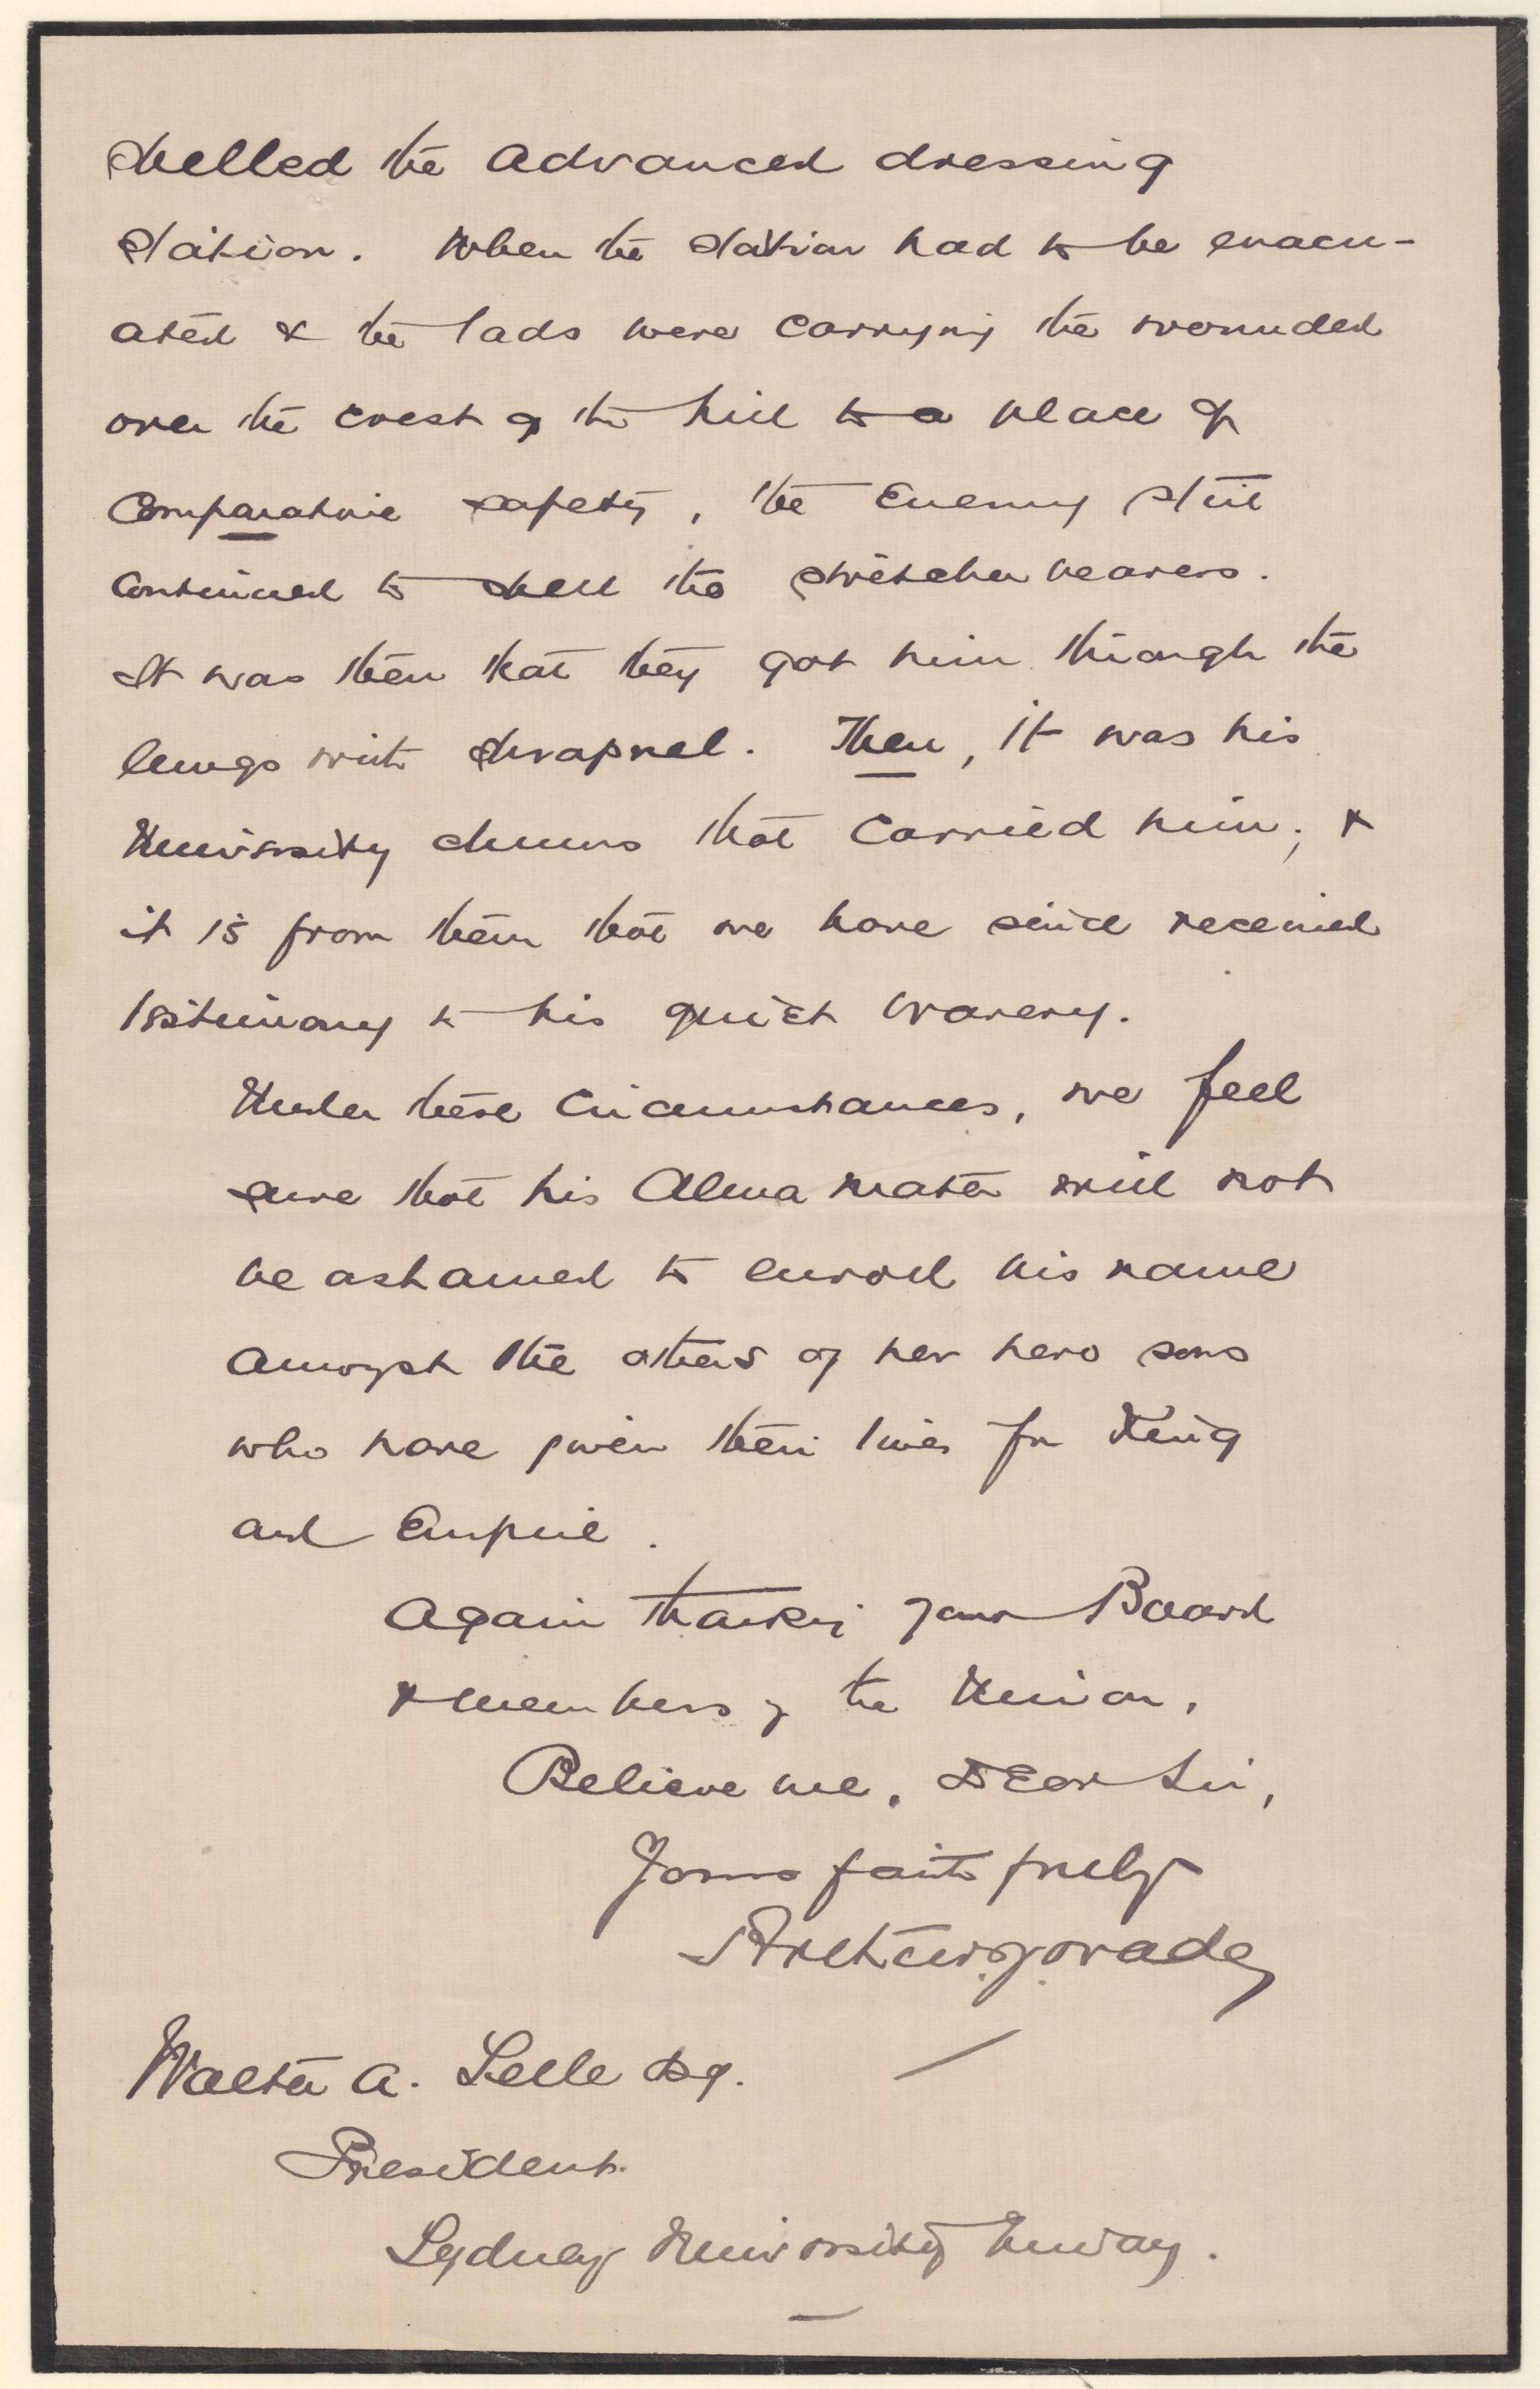 shelled the advanced dressing
station. When the station had to be evacu-
ated & the lads were carrying the wounded
over the crest of the hill to a place of
comparative safety, the Enemy still
continued to shell the stretcher bearers.
It was then that they got him through the
lungs with shrapnel. Then, it was his
University chums that carried him; &
it is from them that we have since received
testimony to his quiet bravery.
Under these circumstances, we feel
sure that his Alma Mater will not
be ashamed to enroll his name
amongst the others of her hero sons
who have given their lives for King
and Empire.
Again thanking your Board
& members of the Union,
Believe me, Dear Sir,
Yours faithfully
Walter A. Selle Esq.
President
Sydney University Union.